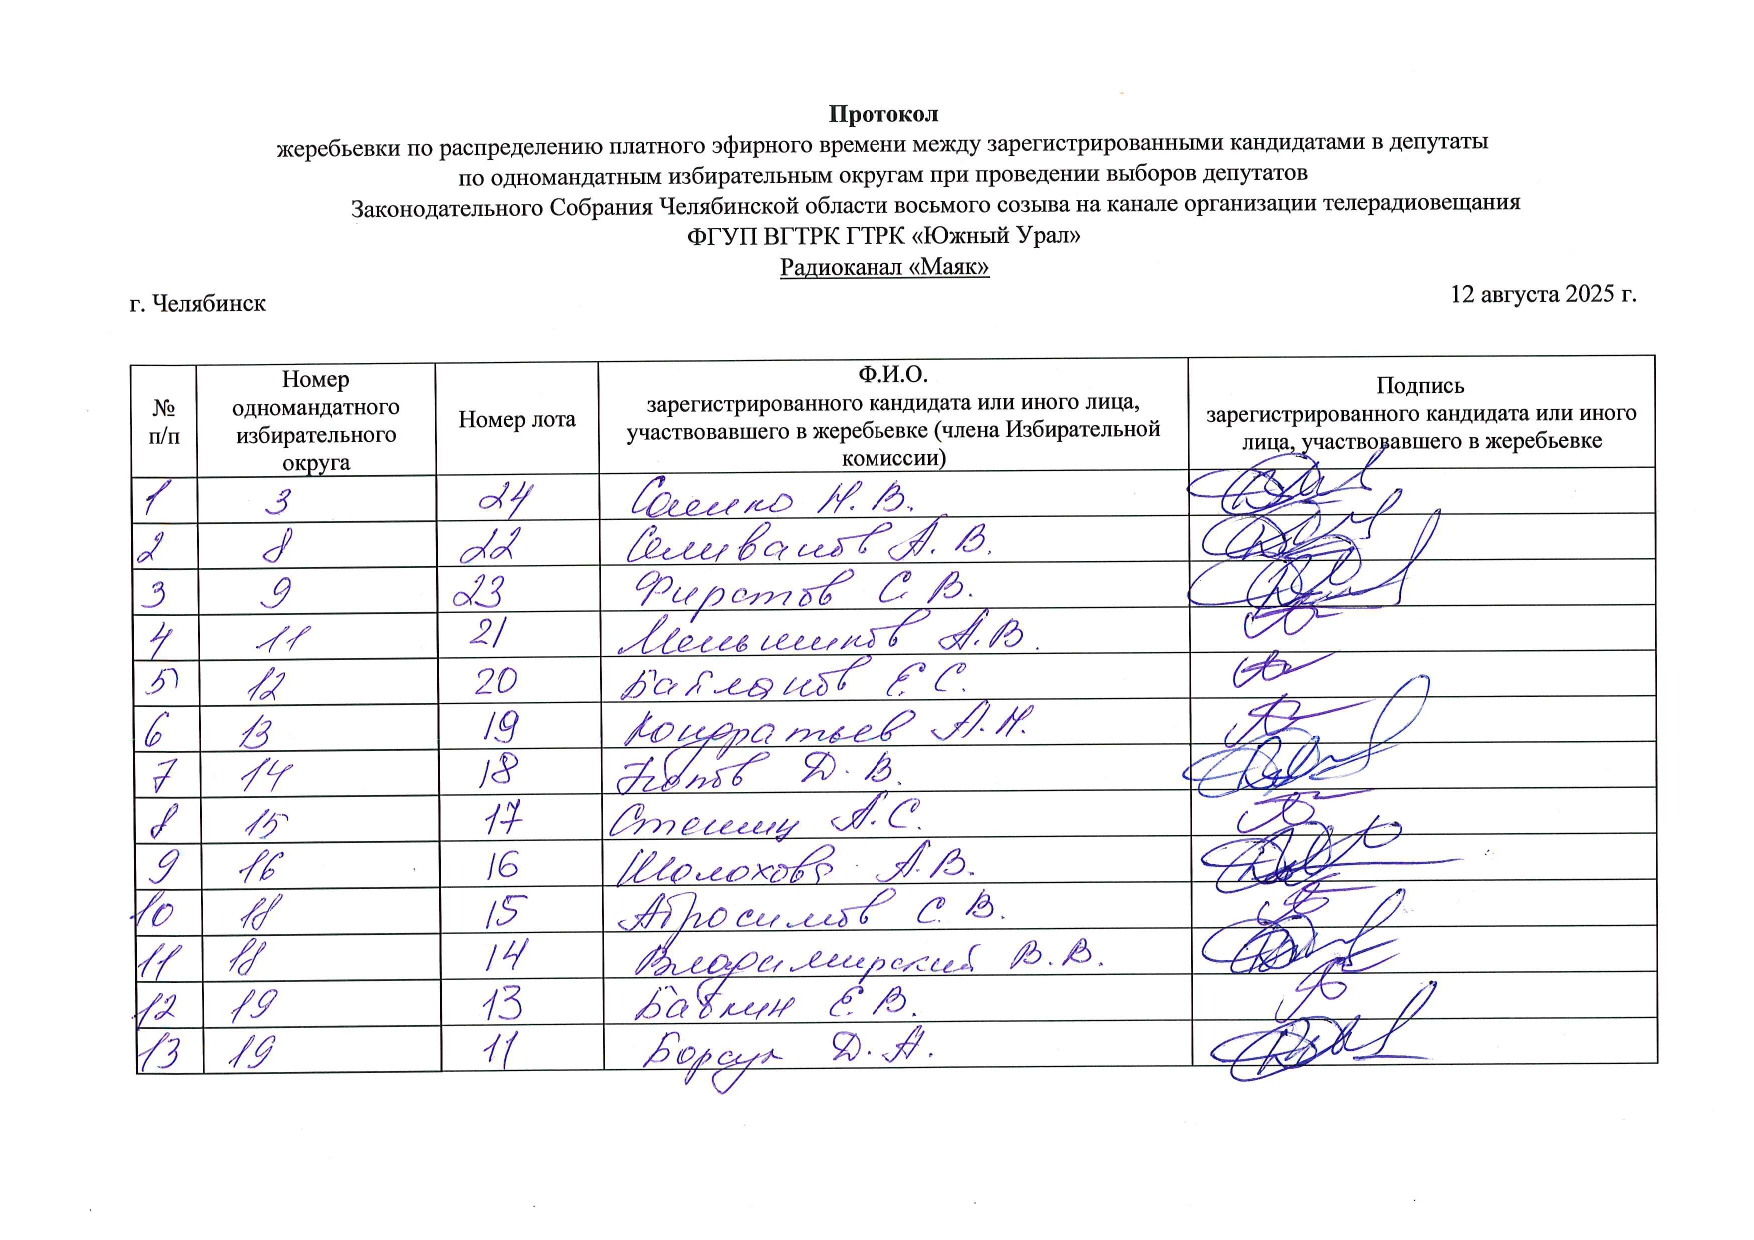 Протокол
жеребьевки по распределению платного эфирного времени между зарегистрированными кандидатами в депутаты
по одномандатным избирательным округам при проведении выборов депутатов
Законодательного Собрания Челябинской области восьмого созыва на канале организации телерадиовещания
ФГУП ВГТРК ГТРК «Южный Урал»
Радиоканал «Маяк»
г. Челябинск 12 августа 2025 г.
№ п/п
Номер одномандатного избирательного округа
Номер лота
Ф.И.О.
зарегистрированного кандидата или иного лица,
участвовавшего в жеребьевке (члена Избирательной
комиссии)
Подпись
зарегистрированного кандидата или иного
лица, участвовавшего в жеребьевке
1 3 24 Сашко Н. В.
2 8 22 Селиванов А. В.
3 9 23 Фирстов С. В.
4 11 21 Меньшиков А. В.
5 12 20 Е. С.
6 13 19 Кондратьев А. Н.
7 14 18 Д. В.
8 15 17 А. С.
9 16 16 Шолохова А. В.
10 18 15 Абросимов С. В.
11 18 14 Владимирский В. В.
12 19 13 Бабкин Е. В.
13 19 11 Борсук Д. А.